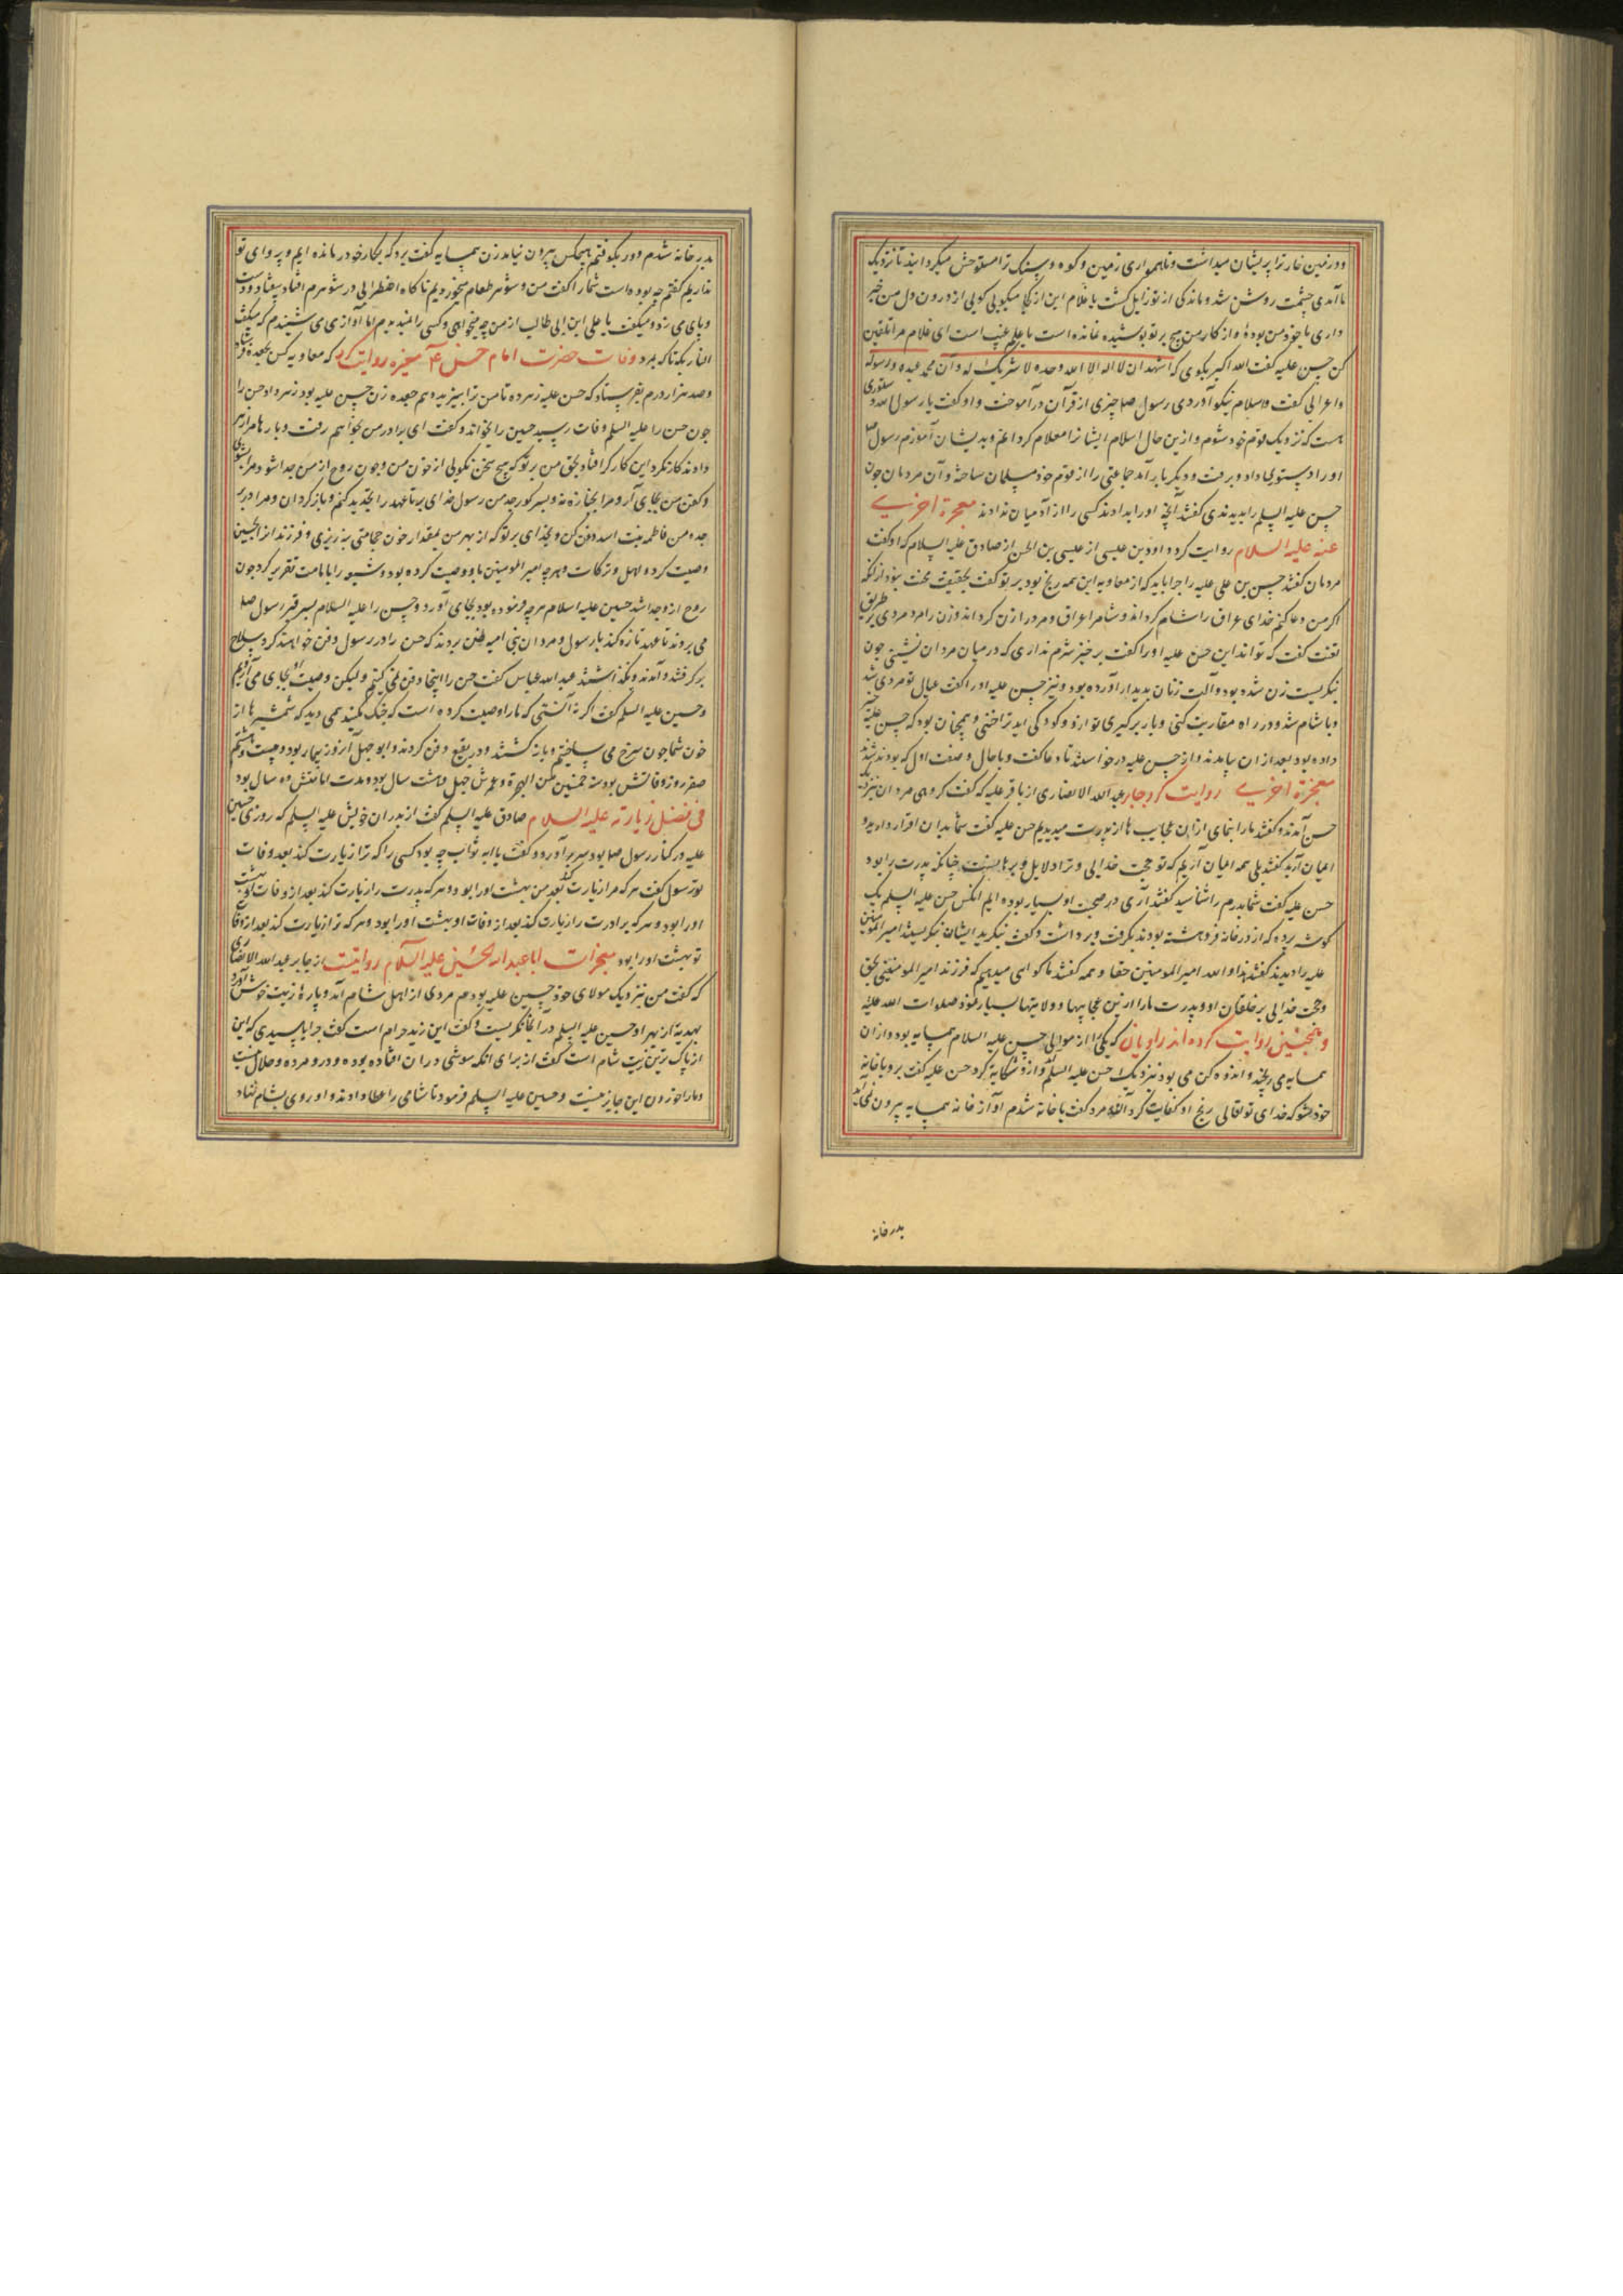 ودر زمین خار ترا پریشان میداشت و ناهمواری زمین و کوه و سنک ترا مستوحش میکردانید تا نزدیک
ما آمدی چشمت روشن شد و ماندکی از تو زایل کشت یا غلام این از کجا میکویی کویی از درون دل من خبر
داری یا خود من بودهٔ و از کار من هیچ بر تو پوشیده نمانده است یا علم غیب است ای غلام مرا تلقین
کن حسن علیه کفت الله اکبر بکوی که اشهد ان لا اله الا الله وحده لا شریک له و ان محمد عبده و رسوله
و اعرابی کفت و اسلام نیکو آورد و رسول صلعم چیزی از قرآن در آموخت و او کفت یا رسول الله دستوری
هست که نزدیک قوم خود شوم و از ین حال اسلام ایشانرا معلام کردانم و بدیشان آموزم رسول صلعم
او را دستوری داد و برفت و دیکر بار آمد جماعتی را از قوم خود مسلمان ساخته و آن مردمان چون
حسن علیه السلم را بدیدندی کفتند آنچه او را بدادند کسی را از آدمیان ندادند معجزة اخری
عنه علیه السلام روایت کرد داود بن عیسی از عیسی بن الحسن از صادق علیه السلام که او کفت
مردمان کفتند حسن بن علی علیه را چرا باید که از معاویه این همه رنج بود بر تو کفت بحقیقت محنت بنود از انکه
اکر من دعا کنم خدای عراق را شام کرداند و شام را عراق و مرد را زن کرداند و زن را مرد مردی بر طریق
لعنت کفت که تواند این حسن علیه او را کفت برخیز شرم نداری که در میان مردان نشینی چون
نیکریست زن شده بود و آلت زنان بدیدار آورده بود و نیز حسن علیه او را کفت عیال تو مردی شد
و با شام شد و در راه مقاربت کنی و بار برکیری تو ازو و کودکی اید ترا خنثی و همچنان بود که حسن علیه خبر
داده بود بعد از ان بیامدند و از حسن علیه درخواستند تا دعا کفت و با حال و صفت اول که بودند شدند
معجزة اخری روایت کرد جابر عبد الله الانصاری از باقر علیه که کفت کروهی مردان نیزدیک
حسن آمدند و کفتند ما را بنمای از ان عجایب ها از پدرت میدیدیم حسن علیه کفت شما بدان اقرار دارید و
ایمان آرید کفتند بلی همه ایمان آریم که تو حجت خدایی و ترا دلایل و برهانست چنانکه پدرت را بود
حسن علیه کفت شما پدرم را شناسید کفتند آری در صحبت او بسیار بوده ایم انکس حسن علیه السلم یک
کوشه پرده که از در خانه فروهشته بودند بکرفت و برداشت و کفت بنکرید ایشان نیکریستند امیر المومنین
علیه را دیدند کفتند هذا و الله امیر المومنین حقا و همه کفتند ما کواهی میدهیم که فرزند امیر المومنینی بحق
و حجت خدایی بر خلقان او و پدرت ما را از ین عجایبها و ولایتها بسیار نمود صلوات الله علیه
و همچنین روایت کرده اند راویان که یکی را از موالی حسن علیه السلام همسایه بود و از ان
همسایه می رنجید و اندوهکن می بود نیزدیک حسن علیه السلم و ازو شکایة کرد حسن علیه کفت برو با خانهٔ
خود شو که خدای تو تعالی رنج او کفایت کرد آن مرد کفت با خانه شدم آواز خانه همسایه بیرون نمی آید
بدر خانه
بدر خانه شدم و در بکوفتم هیچکس بیرون نیامد زن همسایه کفت برو که بکار خود در مانده ایم و پروای تو
نداریم کفتم چه بوده است شما را کفت من و شوهر طعام میخوردیم ناکاه اضطرابی در شوهرم افتاد بیفتاد و دست
و پای می زد و میکفت یا علی ابن ابی طالب از من چه میخواهی و کسی را نمیدیدم اما آوازی می شنیدم که میکفت
النار بکه تا که بمرد وفات حضرت امام حسن ۴ معجزه روایت کرد که معاویه کس بجعده فرستاد
و صد هزار درم بفرستاد که حسن علیه زهر ده تا من ترا بیزید دهم جعده زن حسن علیه بود زهر داد حسن را
چون حسن را علیه السلم وفات رسید حسین را بخواند و کفت ای برادر من بخواهم رفت و بارها مرا زهر
دادند کار نکرد این کار کر افتاد بحق من بر تو که هیچ سخن نکویی از خون من و چون روح از من جدا شود مرا بشوی
و کفن من بجای آر و مرا بجنازه نه و بسر کور جد من رسول خدای بر تا عهد را تجدید کنم و باز کردان و مرا در بر
جده من فاطمه بنت اسد دفن کن و بخدای بر تو که از بهر من بمقدار خون حجامتی نریزی و فرزند انرا همچنین
وصیت کرد و اهل و ترکات و هرچه امیر المومنین باو وصیت کرده بود و شیعه را با مامت تقریر کرد چون
روح ازو جدا شد حسین علیه اسلام هرچه فرموده بود بجای آورد و حسن را علیه السلام بسر قبر رسول صلعم
می بردند تا عهد تازه کند با رسول و مردان بنی امیه ظن بردند که حسن را در بر رسول دفن خواهند کرد سلاح
برکرفتند و آمدند و نکذاشتند عبد الله عباس کفت حسن را اینجا دفن نمی کنیم ولیکن وصیت او بجای می آریم
و حسین علیه السلم کفت اکر نه آنستی که ما را وصیت کرده است که جنک مکنید همی دید که شمشیرها از
خون شما چون سرخ می ساختیم و باز کشتند و در بقیع دفن کردند و ابو جهل آن روز بیمار بود و بیست و هشتم
صفر روز وفاتش بود سنة خمسین من الهجرة و عمرش چهل و هشت سال بود و مدت امامتش ده سال بود
فی فضل زیارته علیه السلام صادق علیه السلم کفت از پدران خویش علیه السلم که روزی حسین
علیه در کنار رسول صلعم بود سر بر آورد و کفت یا ابه ثواب چه بود کسی را که ترا زیارت کند بعد وفات
تو رسول کفت هر که مرا زیارت کند بعد من بهشت او را بود و هر که پدرت را زیارت کند بعد از وفات او بهشت
او را بود و هر که برادرت را زیارت کند بعد از وفات او بهشت او را بود و هر که ترا زیارت کند بعد از وفات
تو بهشت او را بود معجزات ابا عبد الله الحسین علیه السلام روایتست از جابر عبد الله الانصاری
که کفت من نیزدیک مولای خود حسین علیه بودم مردی از اهل شام آمد و پارهٔ زیت خوش آورد
بهدیه از بهر او حسین علیه السلم در آنجا نکریست و کفت این زیت حرام است کفت چرا یا سیدی که این
از پاک ترین زیت شام است کفت از برای انکه موشی در ان افتاده بوده و درو مرده و حلال نیست
و ما را خوردن این جایز نیست و حسین علیه السلم فرمود تا شامی را عطا دادند و او روی بشام نهاد